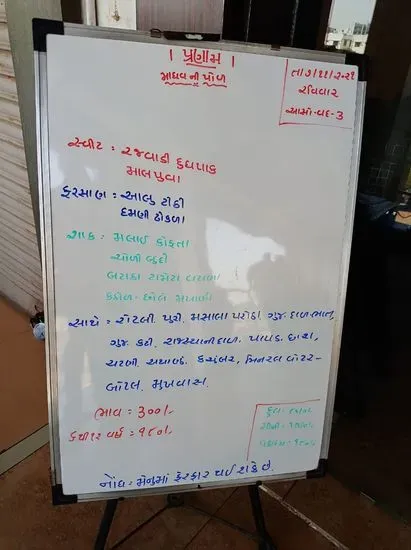 । પ્રણામ ।
માધવ ની પોળ
રવિવાર
આસો-વદ-૩
સ્વીટ : રજવાડી દુધપાક
માલપુવા
ફરસાણ : આલુ ટીકી
દમણી ઢોકળા
શાક : મલાઈ કોફતા
ચોળી બુંદી
બટાકા ટામેટા
કઠોળ - છોલે
સાથે : રોટલી, પુરી, મસાલા પરોઠા, ગુજ. દાળ-ભાત,
ગુજ. કઢી, રાજસ્થાની દાળ, પાપડ, છાશ,
ચટણી, સલાડ, કચુંબર, મિનરલ વોટર-
બોટલ, મુખવાસ.
ભાવ : ૩૦૦/-
૧૮૦/-
નોંધ : મેનુમાં ફેરફાર થઈ શકે છે.